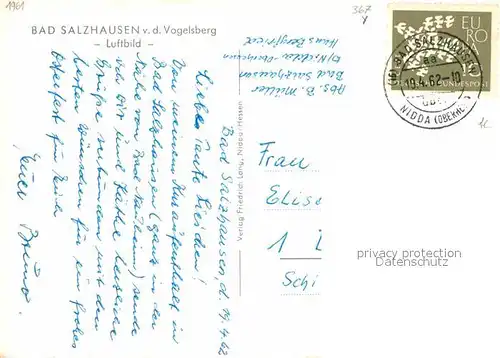 1961
BAD SALZHAUSEN v. d. Vogelsberg
– Luftbild –
367
Y
Abs. B. Müller
Bad Salzhausen
Haus Bergfried
EURO
10
BUNDESPOST
(16) BAD SALZHAUSEN
19.4.62-10
NIDDA (OBERH.)
Bad Salzhausen, d. 19.4.62
Liebes Tante Lieschen!
Von meinem Kuraufenthalt in
Bad Salzhausen (ganz in der
Nähe von Bad Nauheim) sende
ich Dir und Käthe herzliche
Grüße verbunden mit den
besten Wünschen für ein frohes
Osterfest für Euch
Euer Bruno.
Verlag Friedrich Lang, Nidda/Hessen
Frau
Elise
1
Schi
privacy protection
Datenschutz